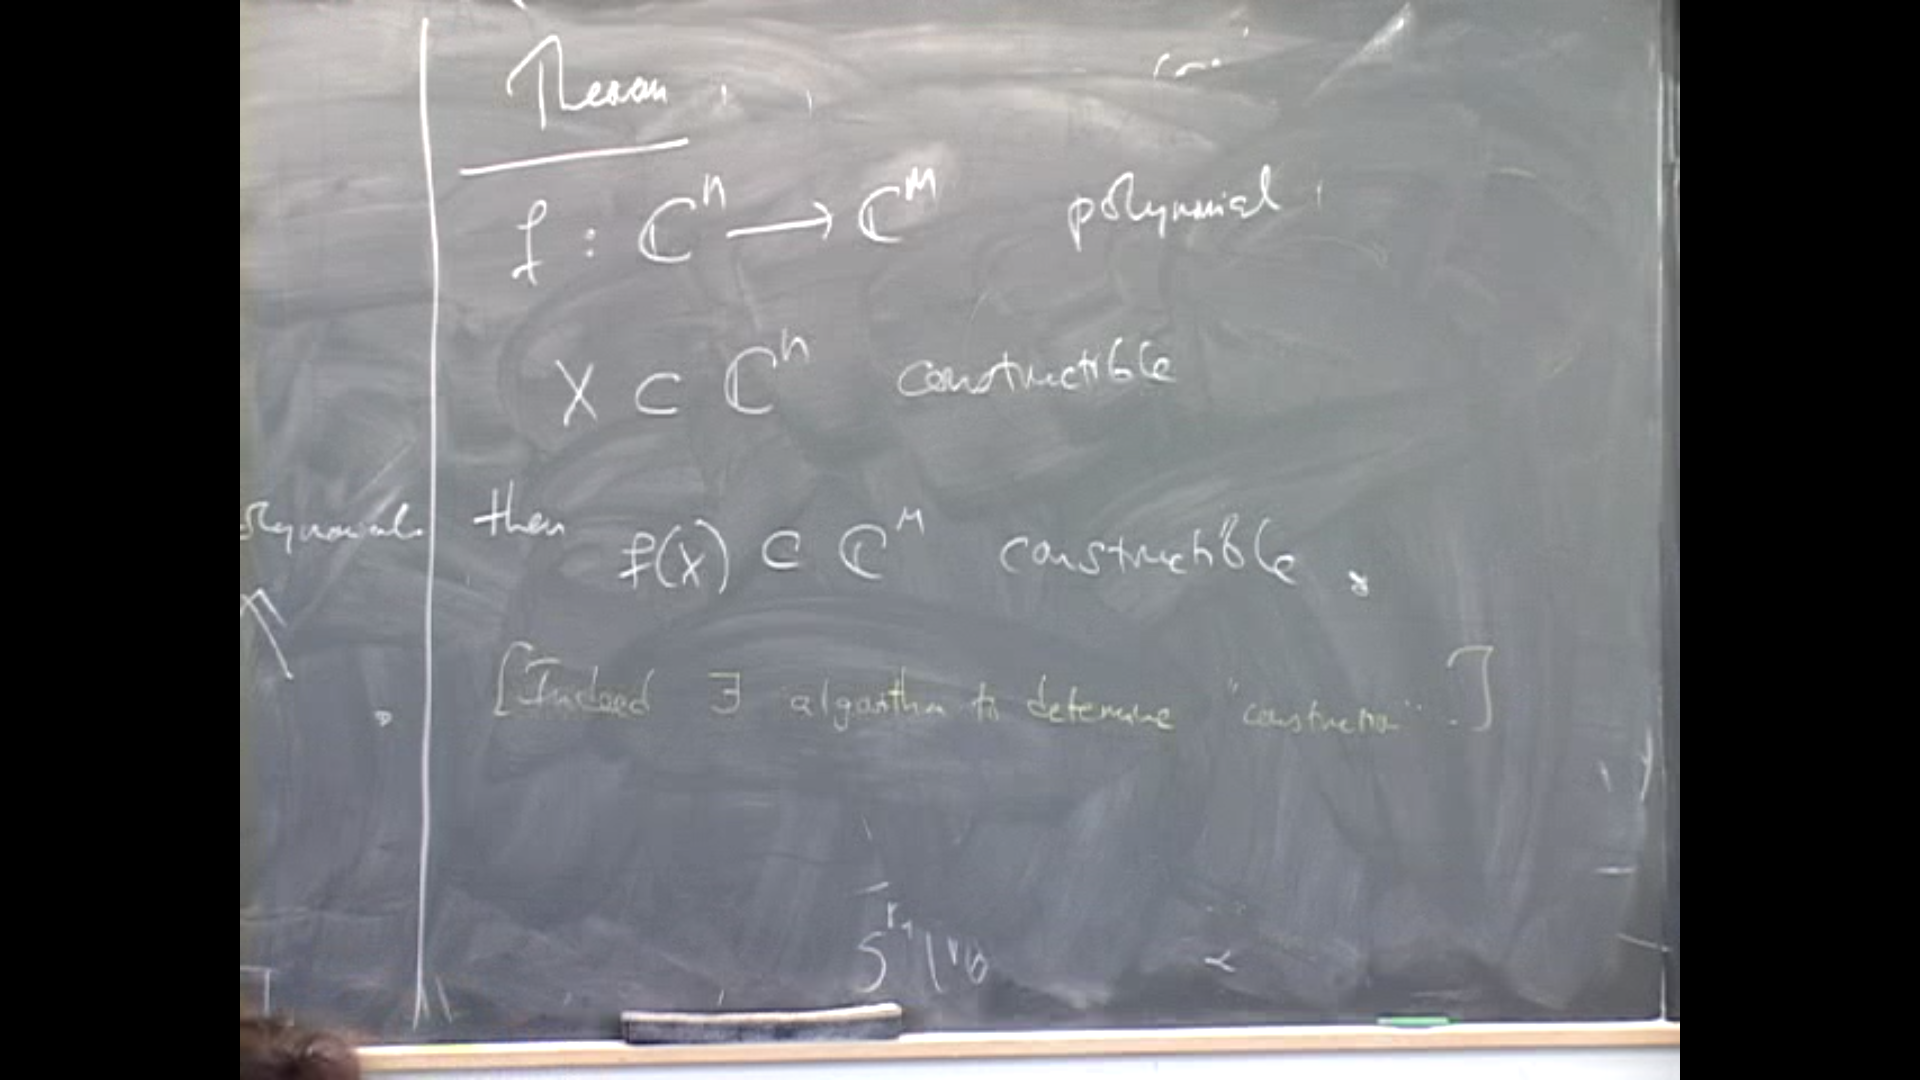 Theorem
f : ℂⁿ → ℂᴹ polynomial,
X ⊂ ℂⁿ constructible
then f(X) ⊂ ℂᴹ constructible.
[Indeed ∃ algorithm to determine "construction".]